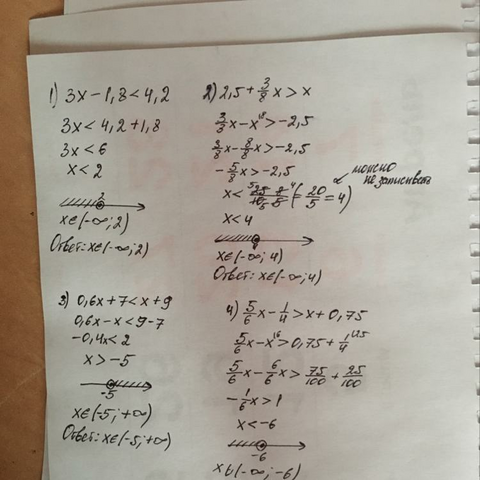 1) 3x-1,8<4,2
3x<4,2+1,8
3x<6
x<2
2
x∈(-∞;2)
Ответ: x∈(-∞;2)
2) 2,5+3/8x>x
3/8x-x>-2,5
3/8x-8/8x>-2,5
-5/8x>-2,5
(20/5=4) можно
не записывать
x<4
4
x∈(-∞;4)
Ответ: x∈(-∞;4)
3) 0,6x+7<x+9
0,6x-x<9-7
-0,4x<2
x>-5
-5
x∈(-5;+∞)
Ответ: x∈(-5;+∞)
4) 5/6x-1/4>x+0,75
5/6x-x>0,75+1/4
5/6x-6/6x>75/100+25/100
-1/6x>1
x<-6
-6
x∈(-∞;-6)